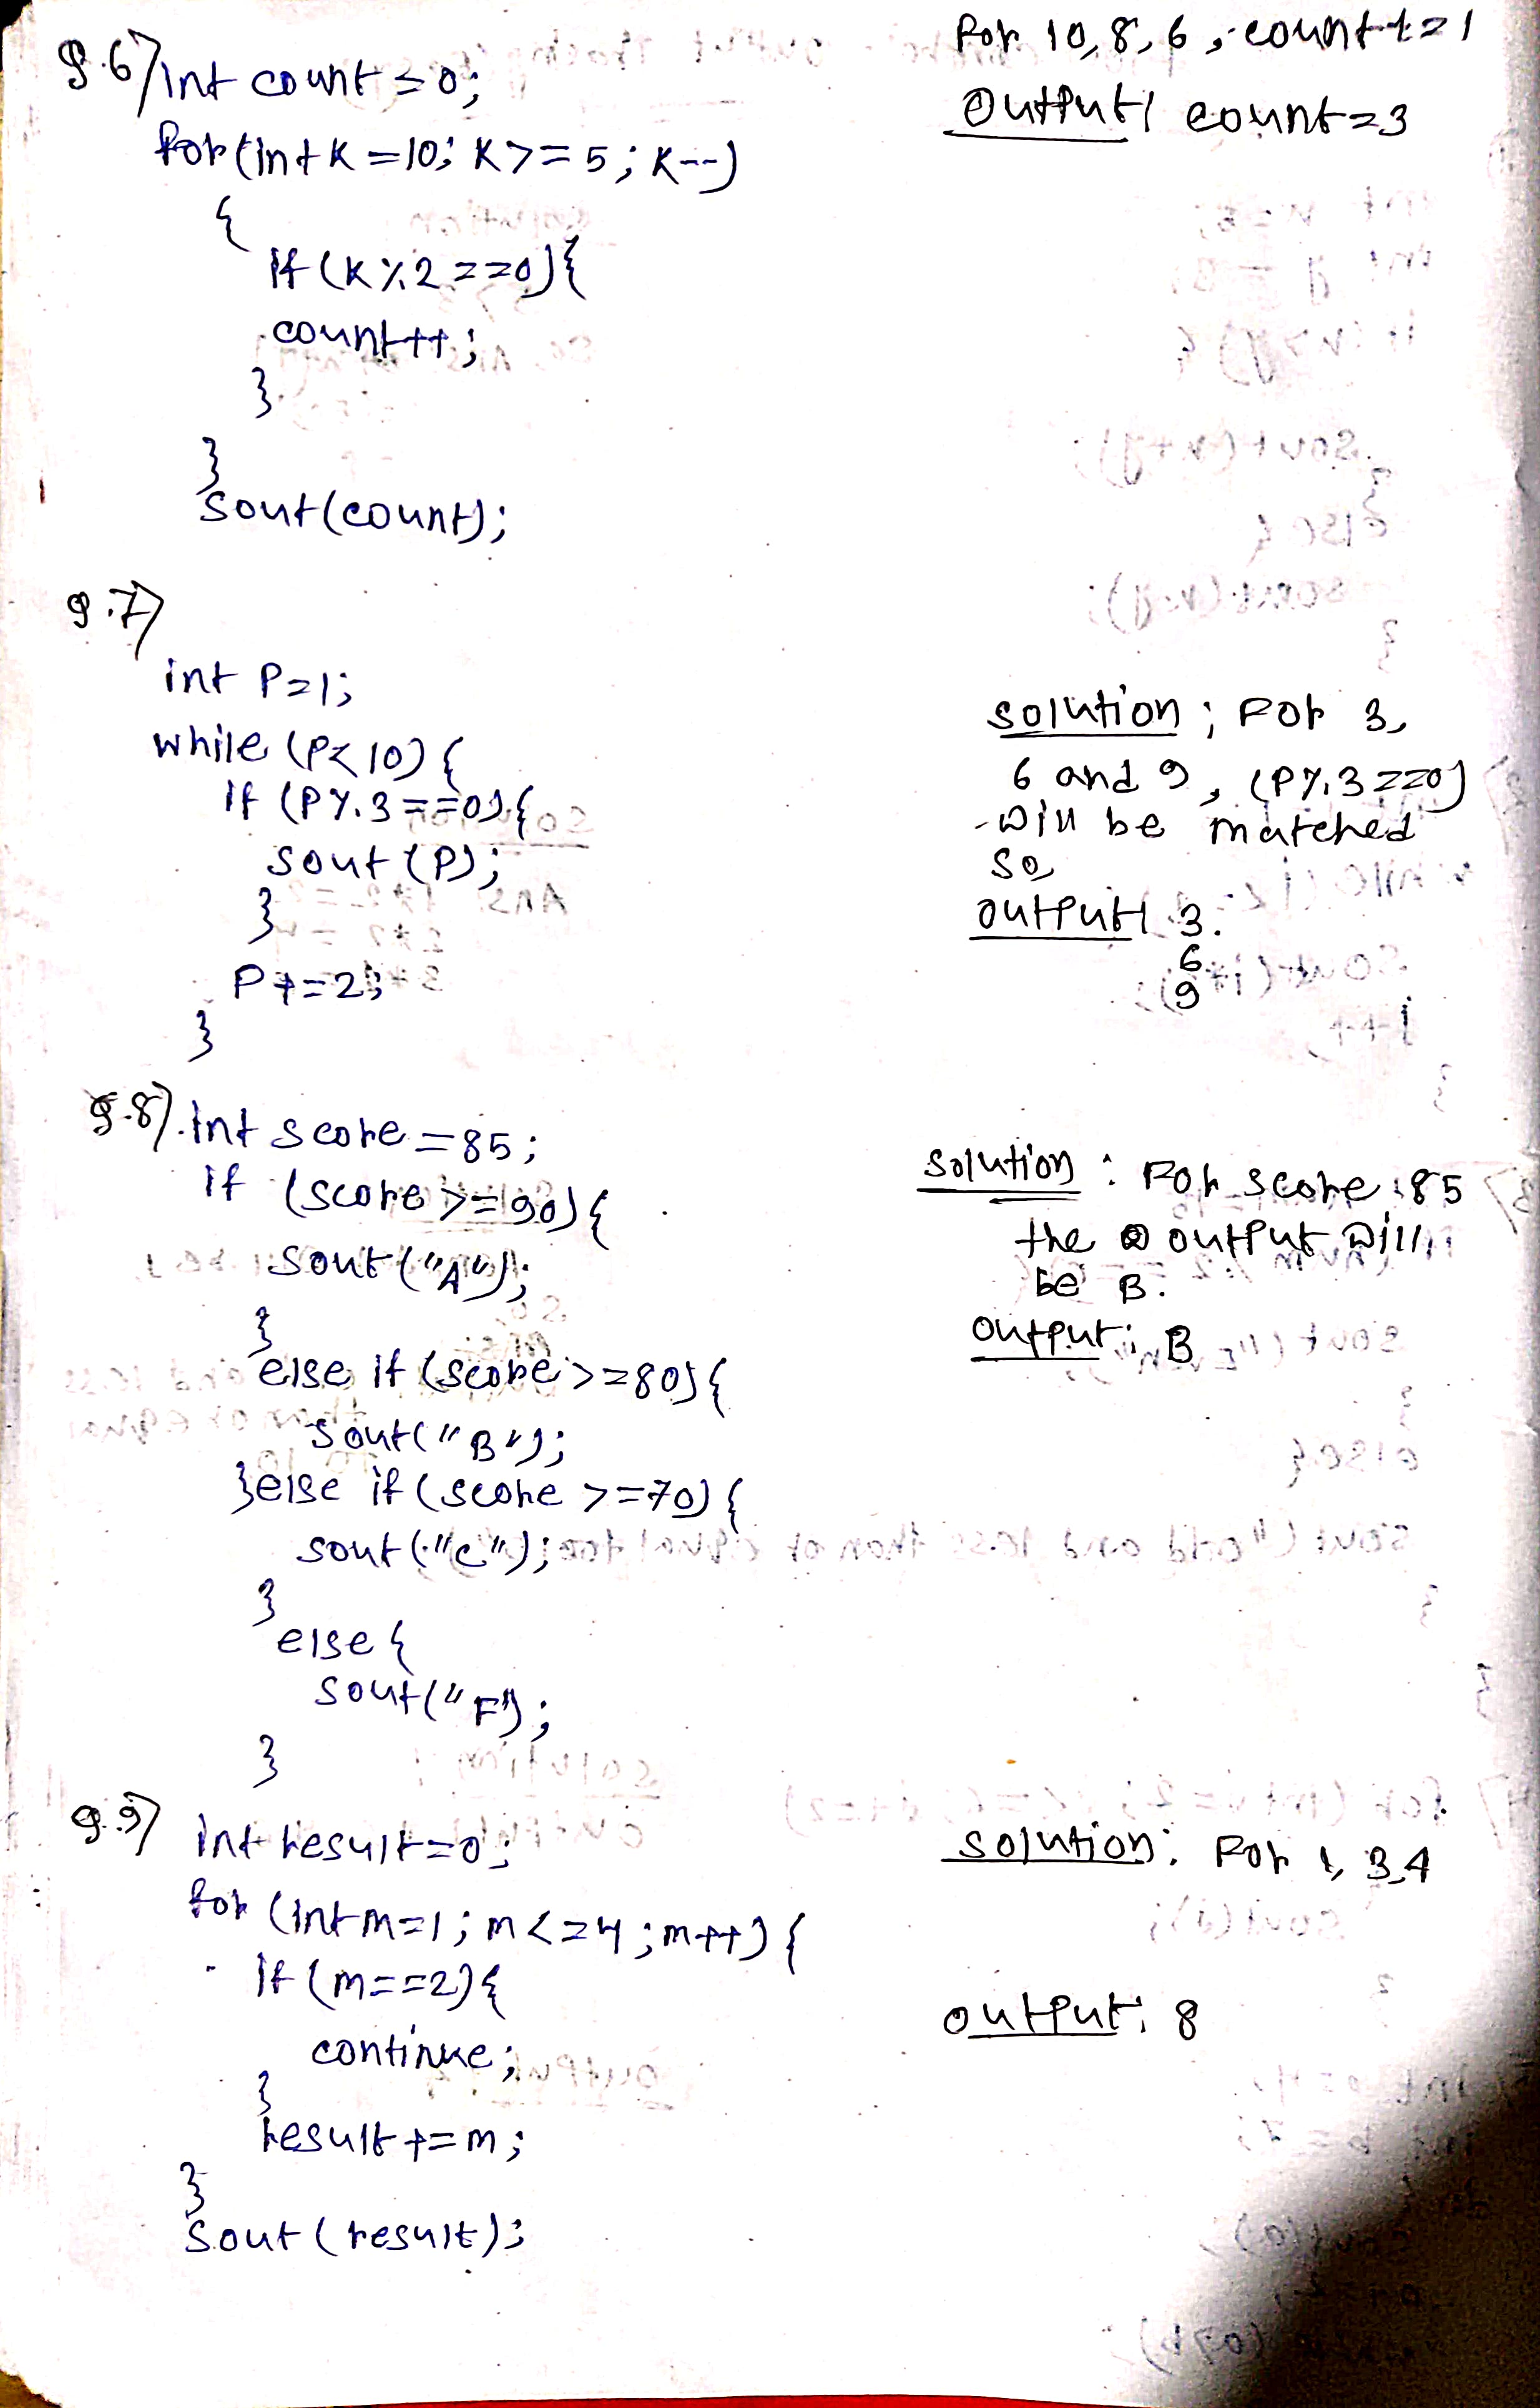 9.6) int count = 0;
for (int K = 10; K >= 5; K--)
{
if (K % 2 == 0) {
count++;
}
}
Sout(count);
For 10, 8, 6, count += 1
Output: count = 3
9.7)
int P = 1;
while (P < 10) {
if (P % 3 == 0) {
sout (P);
}
P += 2;
}
Solution; For 3,
6 and 9, (P % 3 == 0)
will be matched
so,
output: 3
6
9
9.8) int score = 85;
if (score >= 90) {
sout ("A");
}
else if (score >= 80) {
Sout("B");
} else if (score >= 70) {
sout ("C");
}
else {
sout("F");
}
Solution: For score : 85
the output will
be B.
Output: B
9.9) int result = 0;
for (int m = 1; m <= 4; m++) {
if (m == 2) {
continue;
}
result += m;
}
Sout (result);
Solution: For 1, 3, 4
output: 8